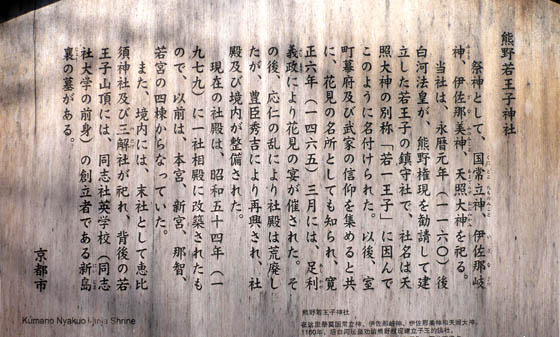 熊野若王子神社
祭神として、国常立神、伊佐那岐
神、伊佐那美神、天照大神を祀る。
当社は、永暦元年(一一六〇)後
白河法皇が、熊野権現を勧請して建
立した若王子の鎮守社で、社名は天
照大神の別称「若一王子」に因んで
このように名付けられた。以後、室
町幕府及び武家の信仰を集めると共
に、花見の名所としても知られ、寛
正六年(一四六五)三月には、足利
義政により花見の宴が催された。そ
の後、応仁の乱により社殿は荒廃し
たが、豊臣秀吉により再興され、社
殿及び境内が整備された。
現在の社殿は、昭和五十四年(一
九七九)に一社相殿に改築されたも
ので、以前は、本宮、新宮、那智、
若宮の四棟からなっていた。
また、境内には、末社として恵比
須神社及び三解社が祀れ、背後の若
王子山頂には、同志社英学校(同志
社大学の前身)の創立者である新島
襄の墓がある。
京都市
Kumano Nyakuo Jinja Shrine
熊野若王子神社